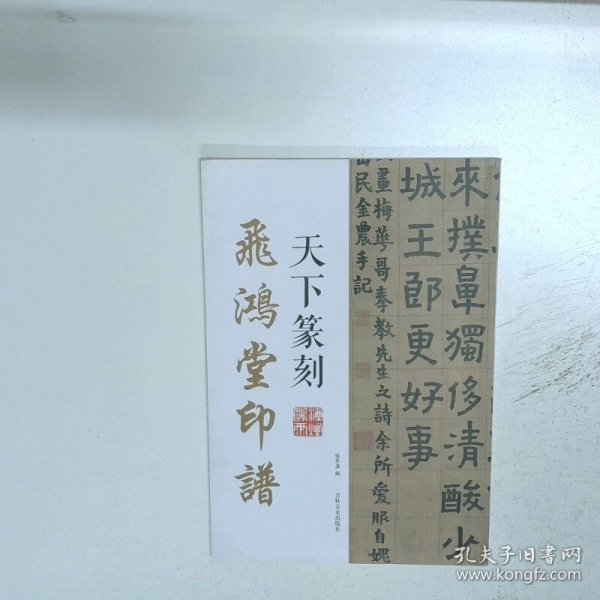 來撲鼻獨侈清酸少
城王郎更好事
畫梅華哥奉教先生之詩余所愛服自媿
民金農手記
天下篆刻
飛鴻堂印譜
編
吉林文史出版社
孔夫子旧书网
www.kongfz.com